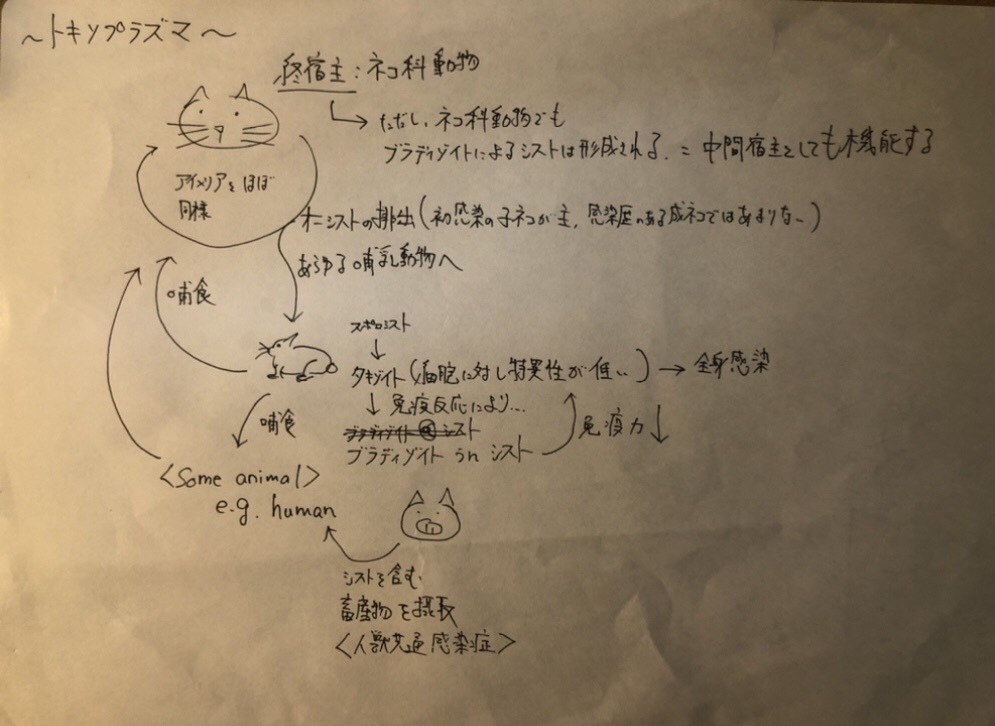 〜トキソプラズマ〜
終宿主：ネコ科動物
ただし、ネコ科動物でも
ブラディゾイトによるシストは形成される。= 中間宿主としても機能する
アイメリアとほぼ
同様
オーシストの排出(初感染の子ネコが主, 感染歴のある成ネコではあまりない)
あらゆる哺乳動物へ
哺食
スポロシスト
タキゾイト(細胞に対し特異性が低い) → 全身感染
免疫反応により...
哺食
ブラディゾイト シスト
免疫力↓
ブラディゾイト in シスト
<Some animal>
e.g. human
シストを含む
畜産物を摂取
<人獣共通感染症>